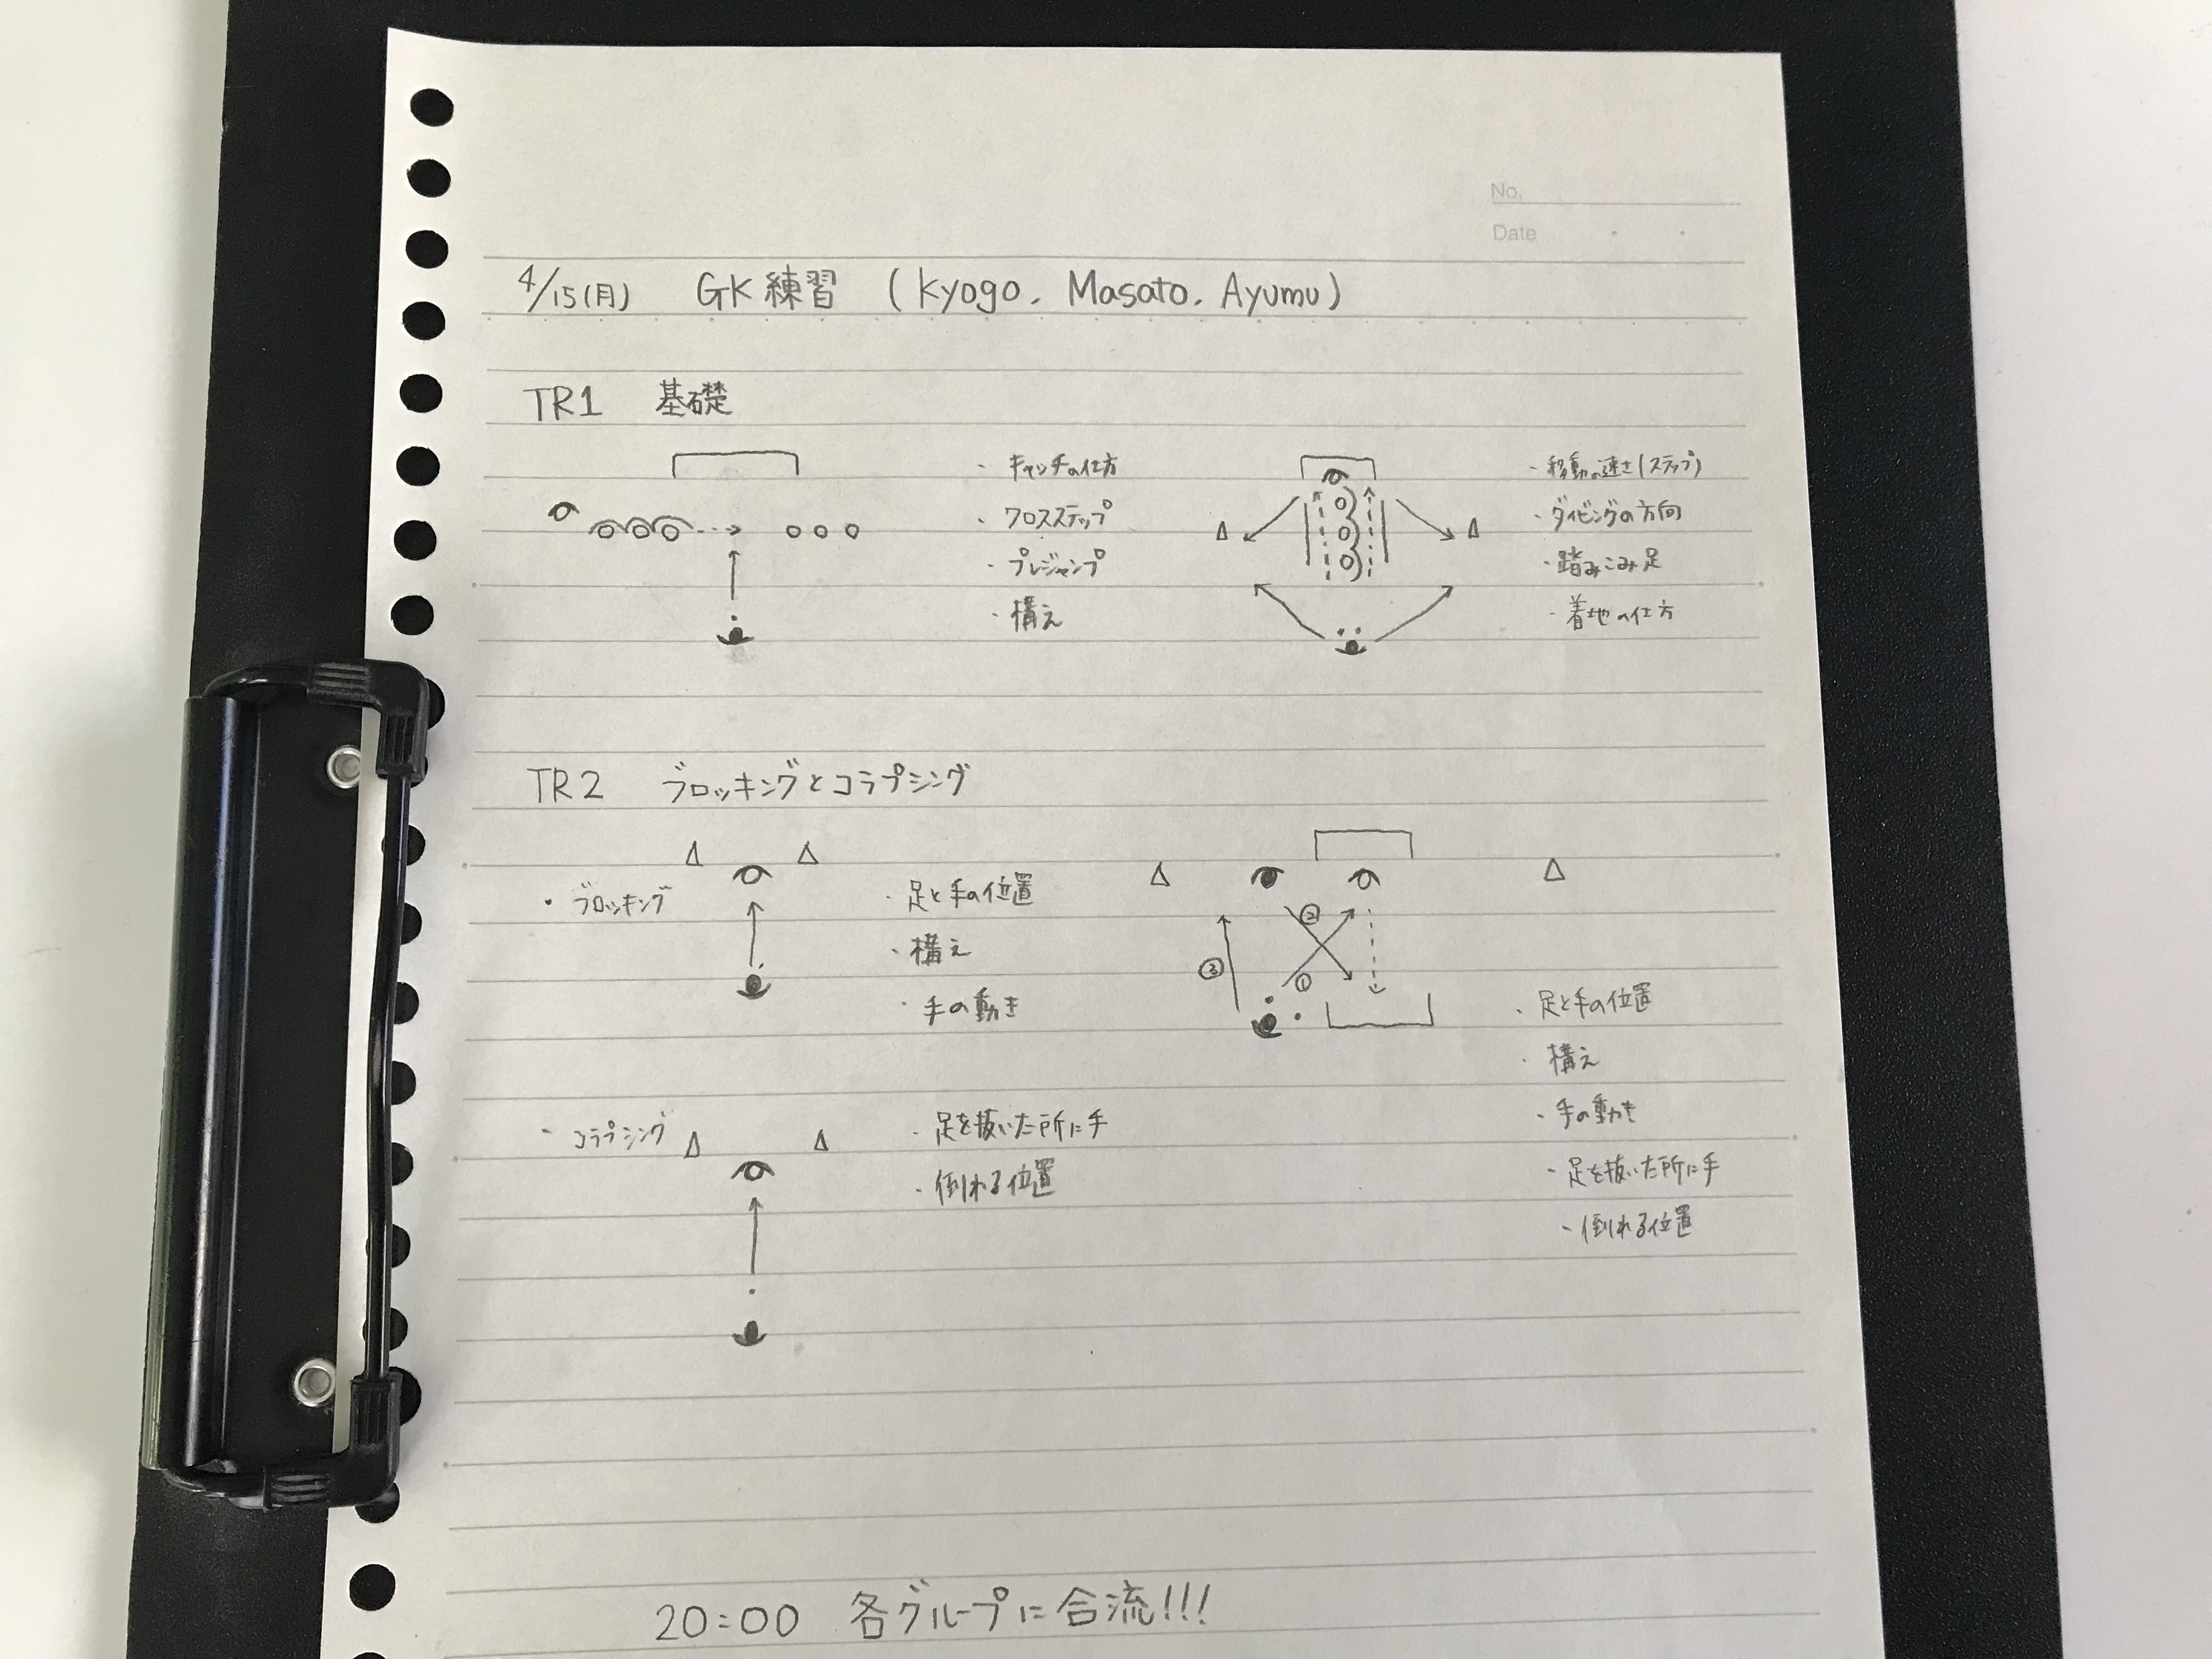 No.
Date
4/15(月) GK練習 (Kyogo, Masato, Ayumu)
TR1 基礎
・キャッチの仕方
・クロスステップ
・プレジャンプ
・構え
・移動の速さ(ステップ)
・ダイビングの方向
・踏みこみ足
・着地の仕方
TR2 ブロッキングとコラプシング
・ブロッキング
・足と手の位置
・構え
・手の動き
②
③
①
・足と手の位置
・構え
・手の動き
・足を抜いた所に手
・倒れる位置
・コラプシング
・足を抜いた所に手
・倒れる位置
20:00 各グループに合流!!!